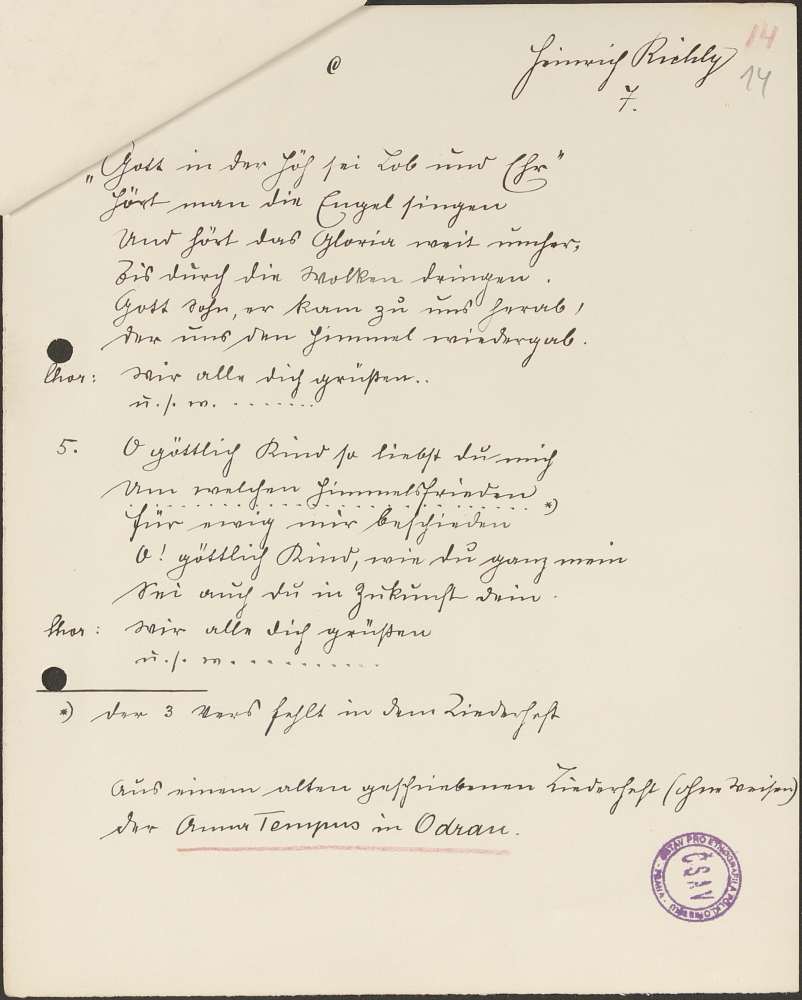 14
Heinrich Richly
14
7.
C
„Gott in der Höh sei Lob und Ehr"
Hört man die Engel singen
Und hört das Gloria weit umher,
Bis durch die Wolken dringen.
Gott Sohn, er kam zu uns herab,
Der uns den Himmel wiedergab.
Chor: Wir alle dich grüßen..
u. s. w. . . . . . . .
5. O göttlich Kind so liebst du mich
Um welchen Himmelsfrieden
. . . . . . . . . . . . . . . . . . . . *)
Für ewig mir beschieden
O! göttlich Kind, wie du ganz mein
Sei auch du in Zukunft dein.
Chor: Wir alle dich grüßen
u. s. w. . . . . . . . . . .
*) Der 3 Vers fehlt in dem Liederheft
Aus einem alten geschriebenen Liederheft (ohne Weisen)
der Anna Tempus in Odrau.
ÚSTAV PRO ETNOGRAFII A FOLKLORISTIKU · PRAHA ·
ČSAV